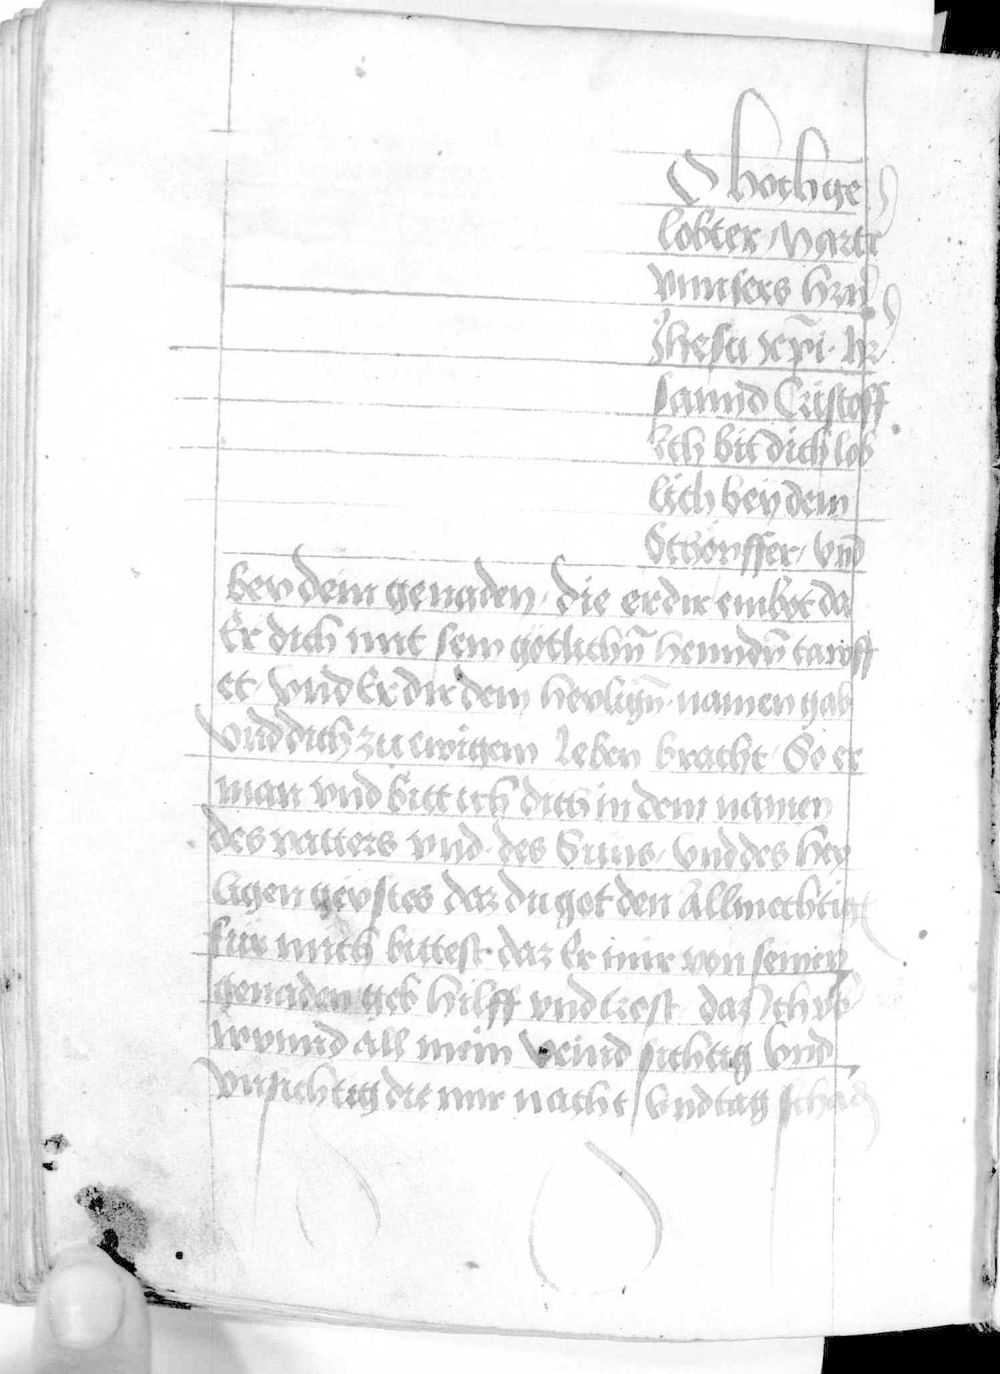 O hochge
lobter / Marter
vnnsers hern
Jhesu xp̄i · hr
sannd Cristoff
Ich bit dich lob
lich bey dem
Schōpffer / vnd
bey dem genaden / die er dir embot da
Er dich mit sein götlichn̄ henndn̄ tawff
et / vnd Er dir dem heylign̄ namen gab
Vnd dich zu ewigem leben bracht / So er
man vnd bitt ich dich in dem namen
des vatters vnd des Suns / vnd des hey
ligen geystes daz du got den Allmechtign
für mich bittest daz Er mir von seinen
genaden geb hilff vnd trost / daz Ich vb
wvnnd all mein veind sichtig vnd
vnsichtig die mir nacht vnd tag schadn